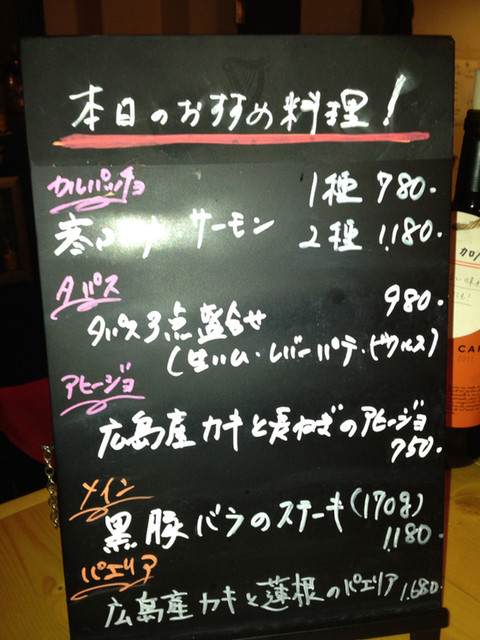 本日のおすすめ料理!
カルパッチョ 1種 780.
サーモン 2種 1,180.
タパス 980.
タパス3点盛合せ
(生ハム・レバーパテ・ピクルス)
アヒージョ
広島産カキと長ねぎのアヒージョ
750.
メイン
黒豚バラのステーキ(170g)
1,180.
パエリア
広島産カキと蓮根のパエリア 1,680.